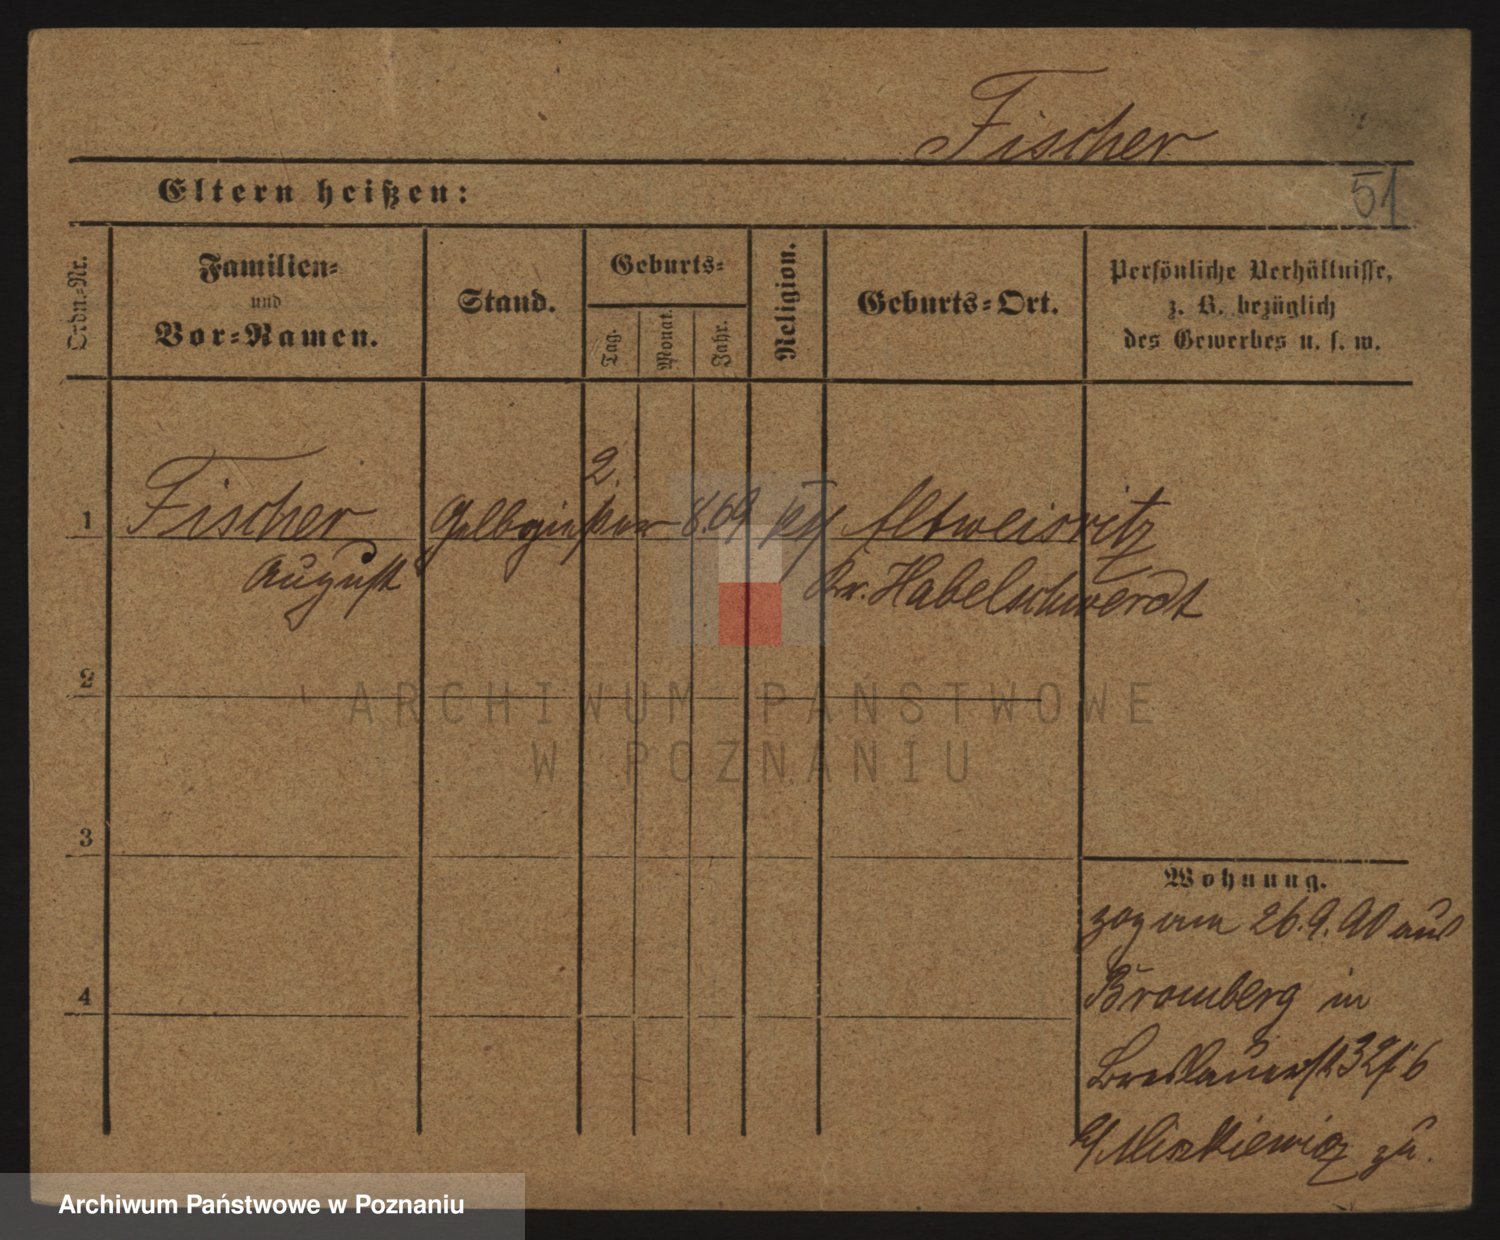 Fischer
Eltern heißen:
51
Ordn.-Nr.
Familien-
und
Vor-Namen.
Stand.
Geburts-
Tag.
Monat.
Jahr.
Religion.
Geburts-Ort.
Persönliche Verhältnisse,
z. B. bezüglich
des Gewerbes u. s. w.
1 Fischer Gelbgießer 2. 8. 69
August
Kr. Habelschwerdt
2
3
4
Wohnung.
zog am 26.9.90 aus
Bromberg in
Breslauerst 32
zu.
ARCHIWUM PAŃSTWOWE
W POZNANIU
Archiwum Państwowe w Poznaniu